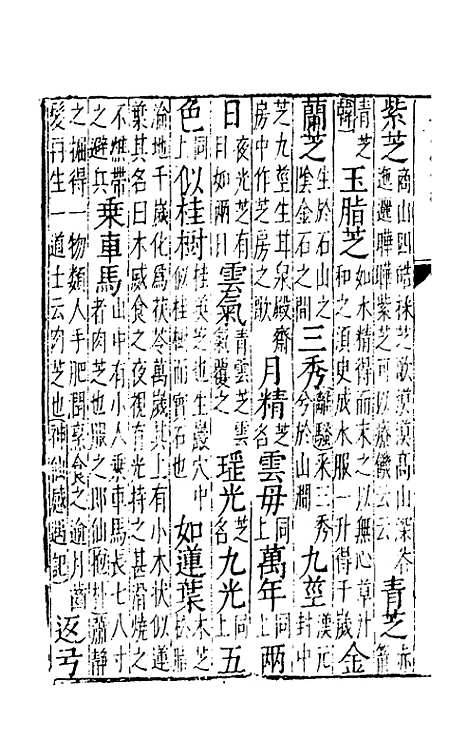 紫芝商山四皓採芝歌漠漠高山深谷逶迤曄曄紫芝可以療饑云云青芝赤箭
青芝玉脂芝如水精得而末之以無心草汁和之須史成水服一升得千歲金
蘭芝生於石山之陰金石之間三秀離騷采三秀兮於山澗九莖漢元封中
芝九莖生耳泉殿齋房中作芝房之歌月精芝名雲母同上萬年同上兩
日夜光芝有日如兩日雲氣青雲芝雲氣覆之瑶光芝名九光同上五
色同上似桂樹桂芝也生巖穴中似桂樹而實石也如蓮葉木芝松脂
淪地千歲化爲茯苓萬歲其上有小木狀似蓮葉其名曰木威食之夜視有光持之甚滑燒之
不燋帶之避兵乘車馬山中有小人乘車馬長七八寸者肉芝也服之即仙抱朴蕭靜
之掘得一物類人手肥潤烹食之逾月齒髮再生一道士云肉芝也神仙感遇記返弓